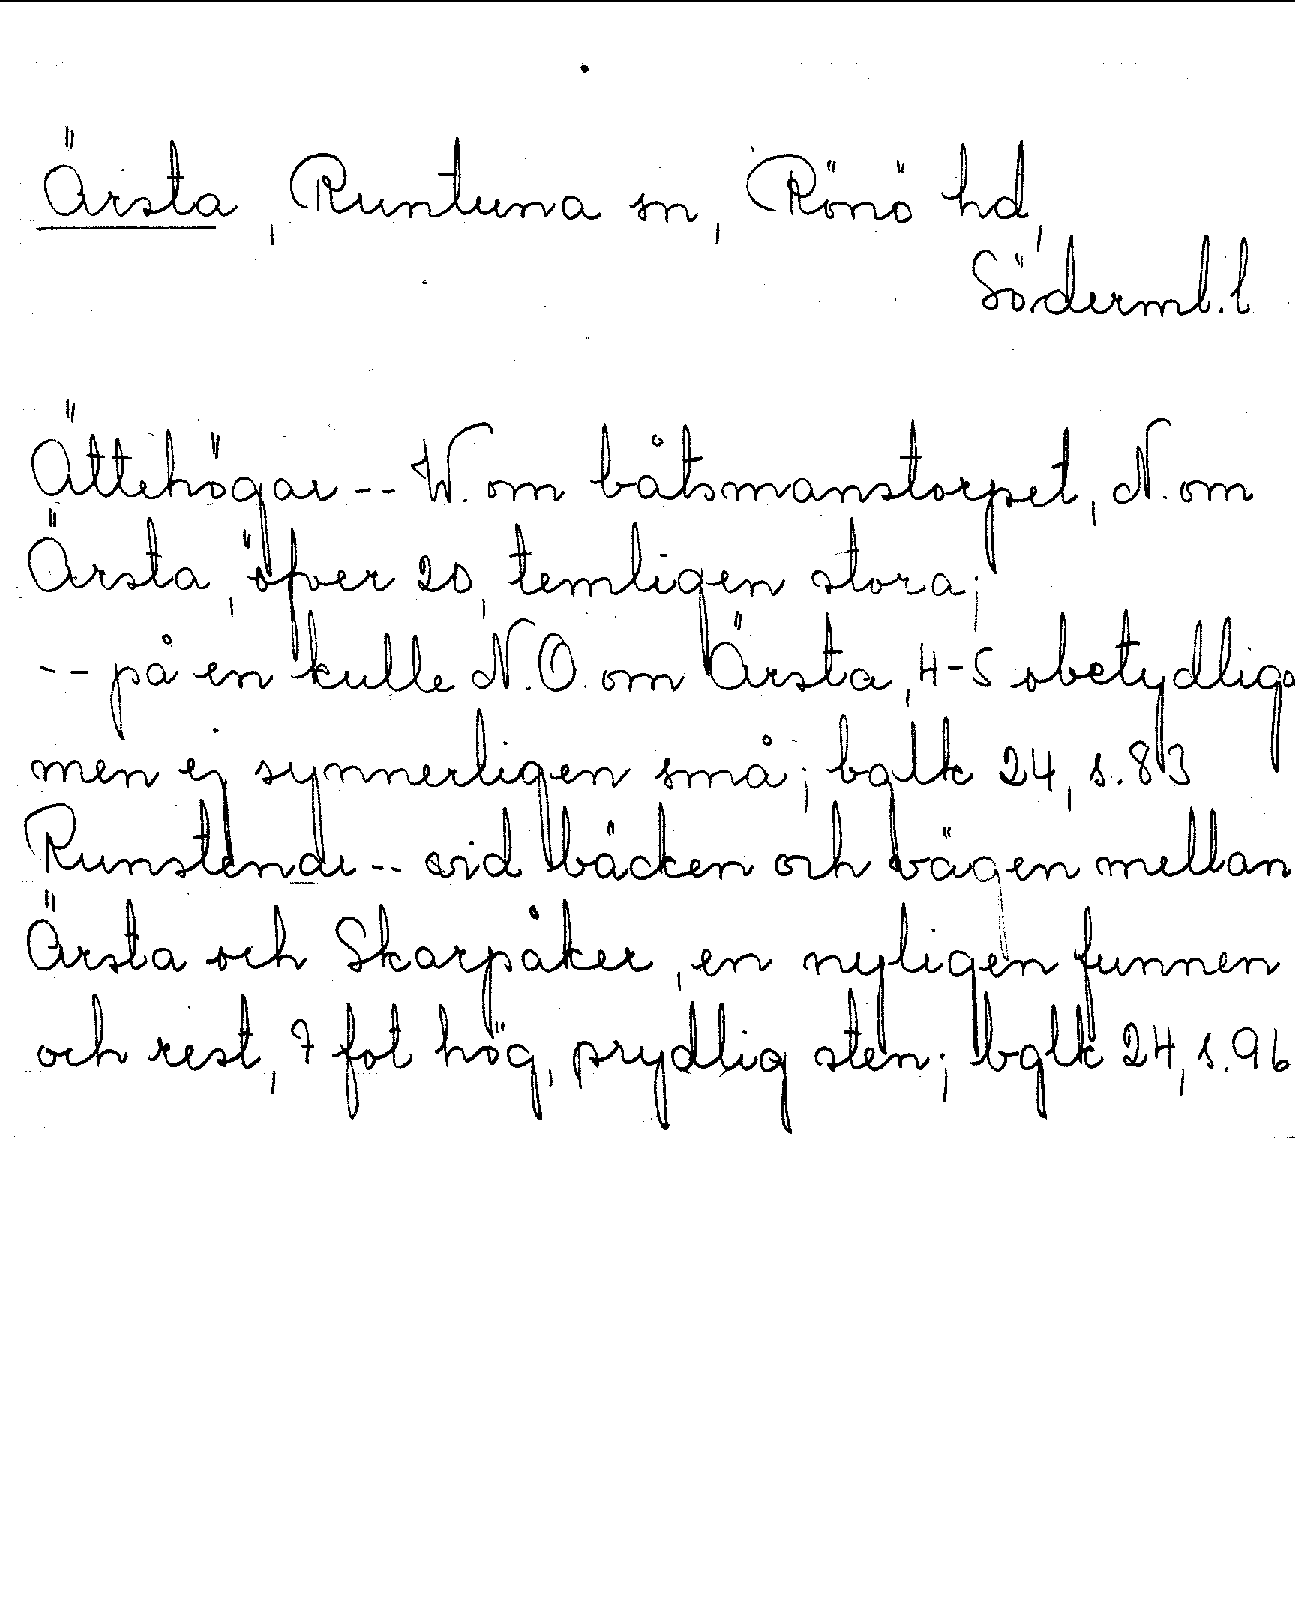 Ärsta, Runtuna sn, Rönö hd,
Söderml. l
Ättehögar -- W. om båtsmanstorpet, N. om
Ärsta, öfver 20, temligen stora;
-- på en kulle N.O. om Ärsta, 4-5 obetydliga
men ej synnerligen små; bglk 24, s. 83
-- vid bäcken och vägen mellan
Ärsta och Skarpåker, en nyligen funnen
och rest, 7 fot hög, prydlig sten; bglk 24, s. 96